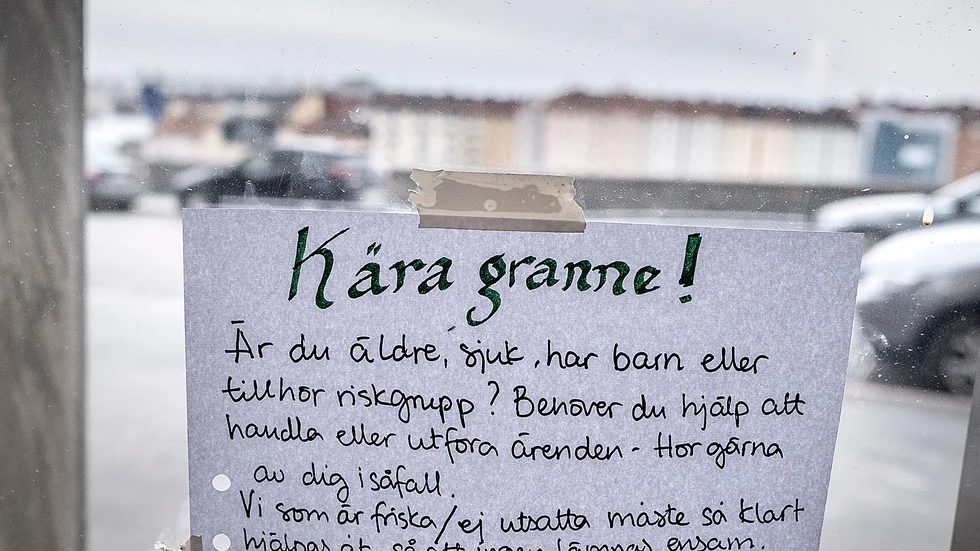 Kära granne!
Är du äldre, sjuk, har barn eller
tillhör riskgrupp? Behöver du hjälp att
handla eller utföra ärenden - Hör gärna
av dig isåfall.
Vi som är friska/ej utsatta måste så klart
hjälpas åt, så att ingen lämnas ensam.